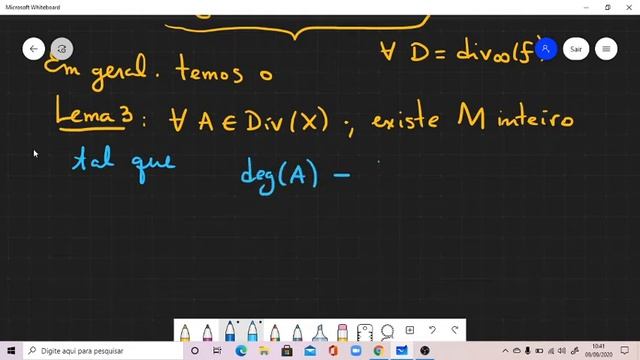 Microsoft Whiteboard
∀ D = div∞(f)
Sair
Em geral. temos o
Lema 3: ∀ A ∈ Div(X) ; existe M inteiro
tal que deg(A) −
Digite aqui para pesquisar
10:41
09/09/2020